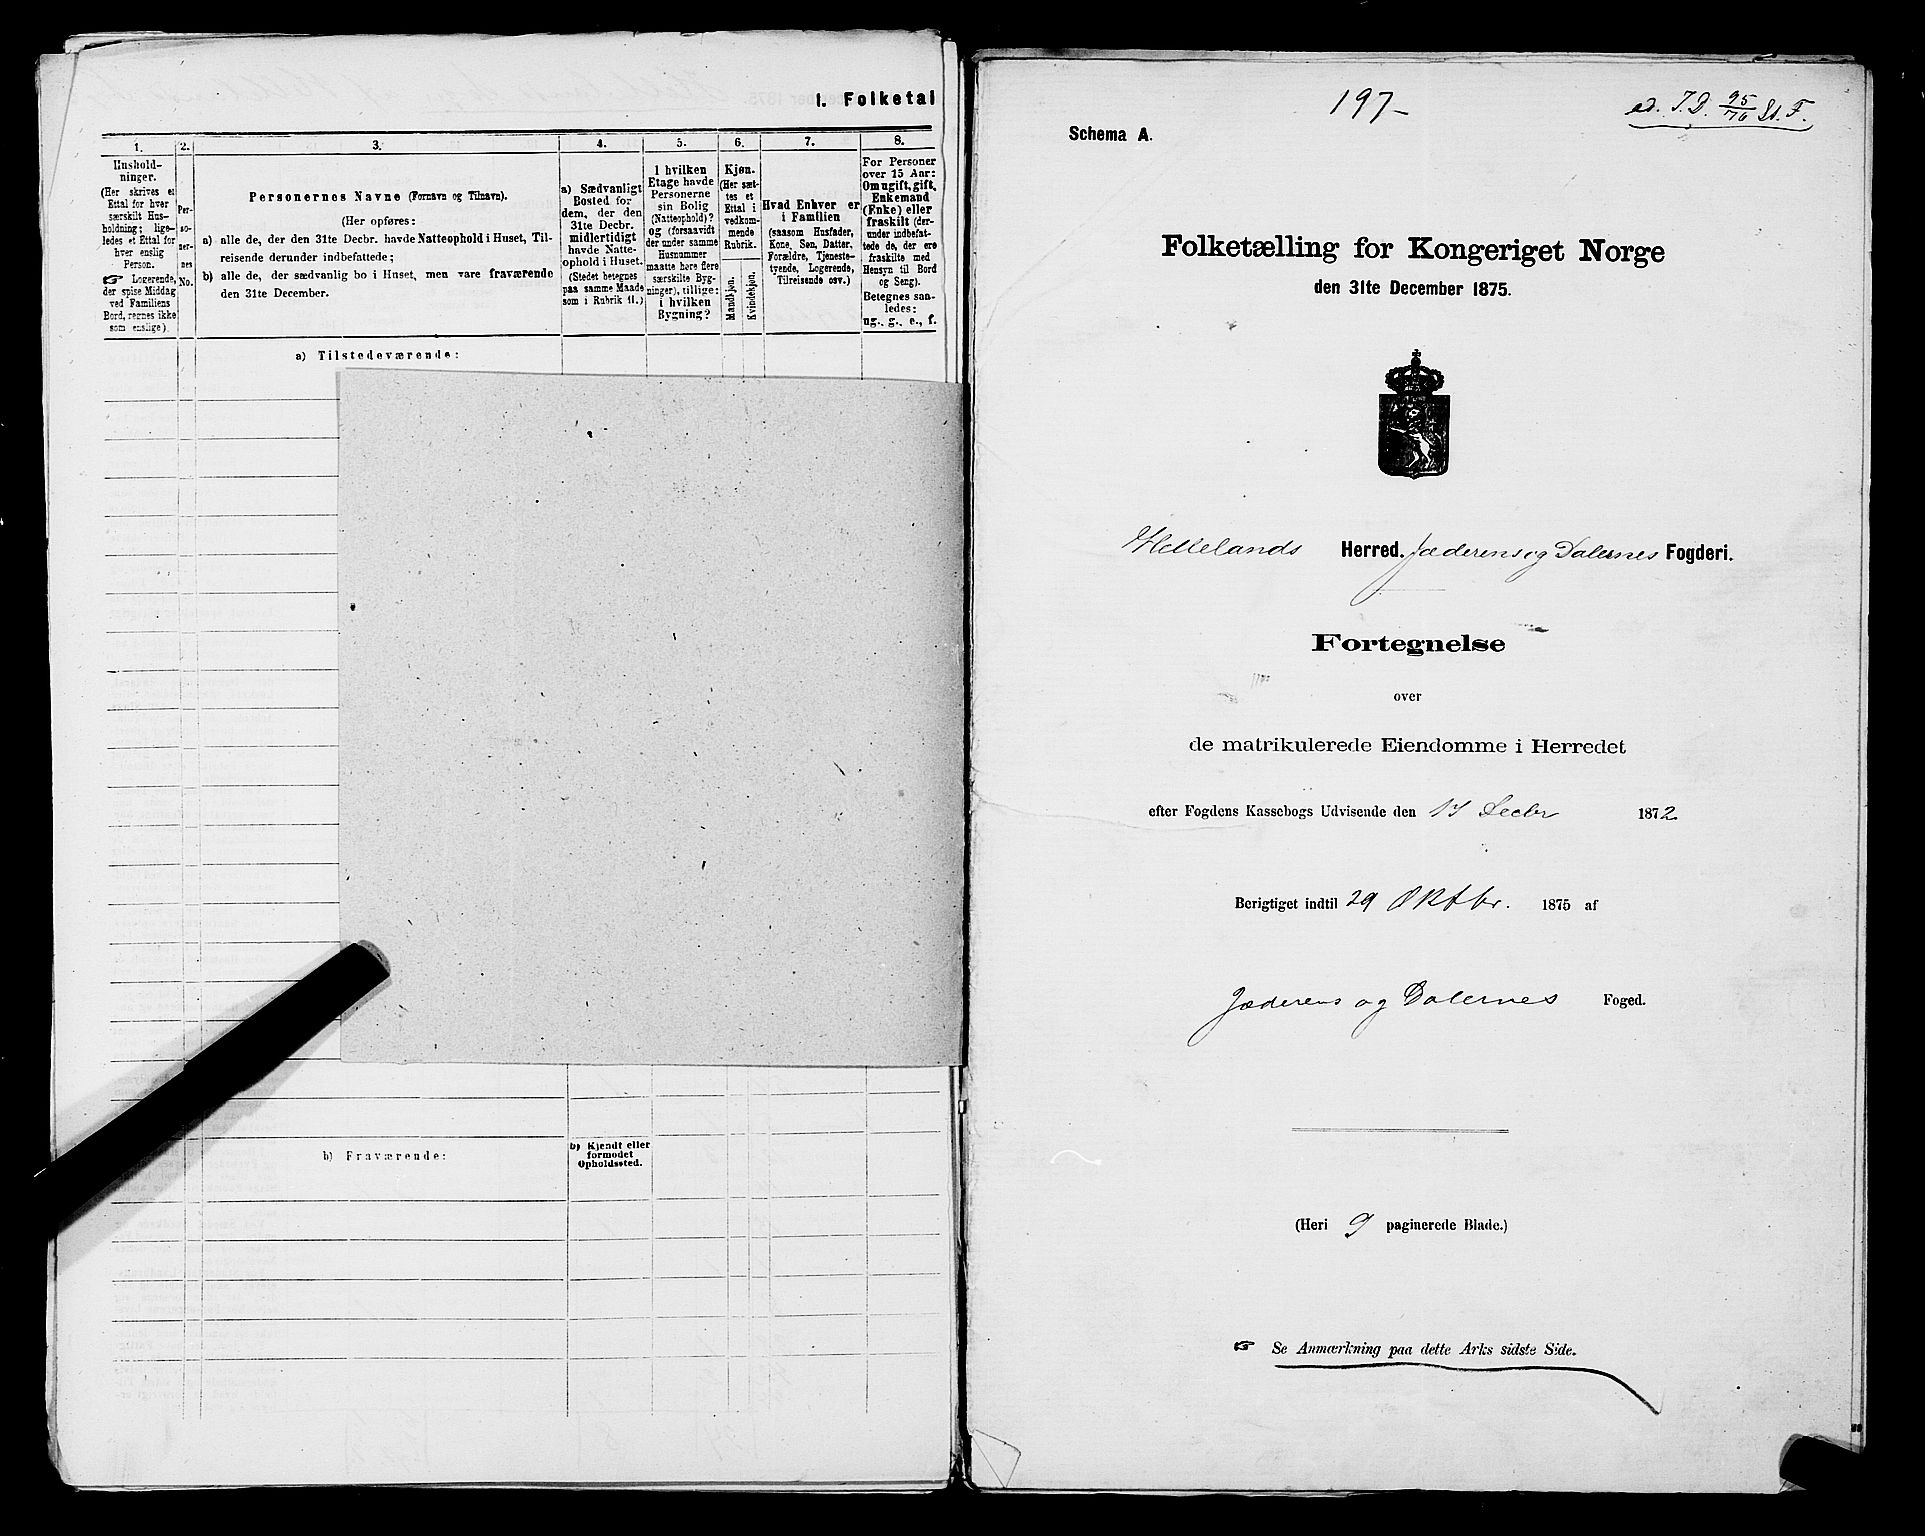 1. Folketal
1.
2.
3.
4.
5.
6.
7.
8.
Hushold-
ninger.
(Her skrives et
Ettal for hver
særskilt Hus-
holdning; lige-
ledes et Ettal for
hver enslig
Person.
☞ Logerende,
der spise Middag
ved Familiens
Bord, regnes ikke
som enslige).
Per-
so-
ner-
nes
No.
Personernes Navne (Fornavn og Tilnavn).
(Her opføres:
a) alle de, der den 31te Decbr. havde Natteophold i Huset, Til-
reisende derunder indbefattede;
b) alle de, der sædvanlig bo i Huset, men vare fraværende
den 31te December.
a) Sædvanligt
Bosted for
dem, der den
31te Decbr.
midlertidigt
havde Natte-
ophold i Huset.
(Stedet betegnes
paa samme Maade
som i Rubrik 11.)
I hvilken
Etage havde
Personerne
sin Bolig
(Natteophold)?
og (forsaavidt
der under samme
Husnummer
maatte høre flere
særskilte Byg-
ninger), tillige:
i hvilken
Bygning?
Kjøn.
(Her sæt-
tes et
Ettal i
vedkom-
mende
Rubrik.
Mandkjøn.
Kvindekjøn.
Hvad Enhver er
i Familien
(saasom Husfader,
Kone, Søn, Datter,
Forældre, Tjeneste-
tyende, Logerende,
Tilreisende osv.)
For Personer
over 15 Aar:
Om ugift, gift,
Enkemand
(Enke) eller
fraskilt (der-
under indbefat-
tede de, der ere
fraskilte med
Hensyn til Bord
og Seng).
Betegnes saa-
ledes:
ug., g., e., f.
a) Tilstedeværende:
b) Fraværende:
b) Kjendt eller
formodet
Opholdssted.
197-
Schema A.
Folketælling for Kongeriget Norge
den 31te December 1875.
Hellelands Herred. Jæderens og Dalernes Fogderi.
Fortegnelse
over
de matrikulerede Eiendomme i Herredet
efter Fogdens Kassebogs Udvisende den Decbr 1872
Berigtiget indtil 29 Oktbr. 1875 af
Jæderens og Dalernes Foged.
(Heri 9 paginerede Blade.)
☞ Se Anmærkning paa dette Arks sidste Side.